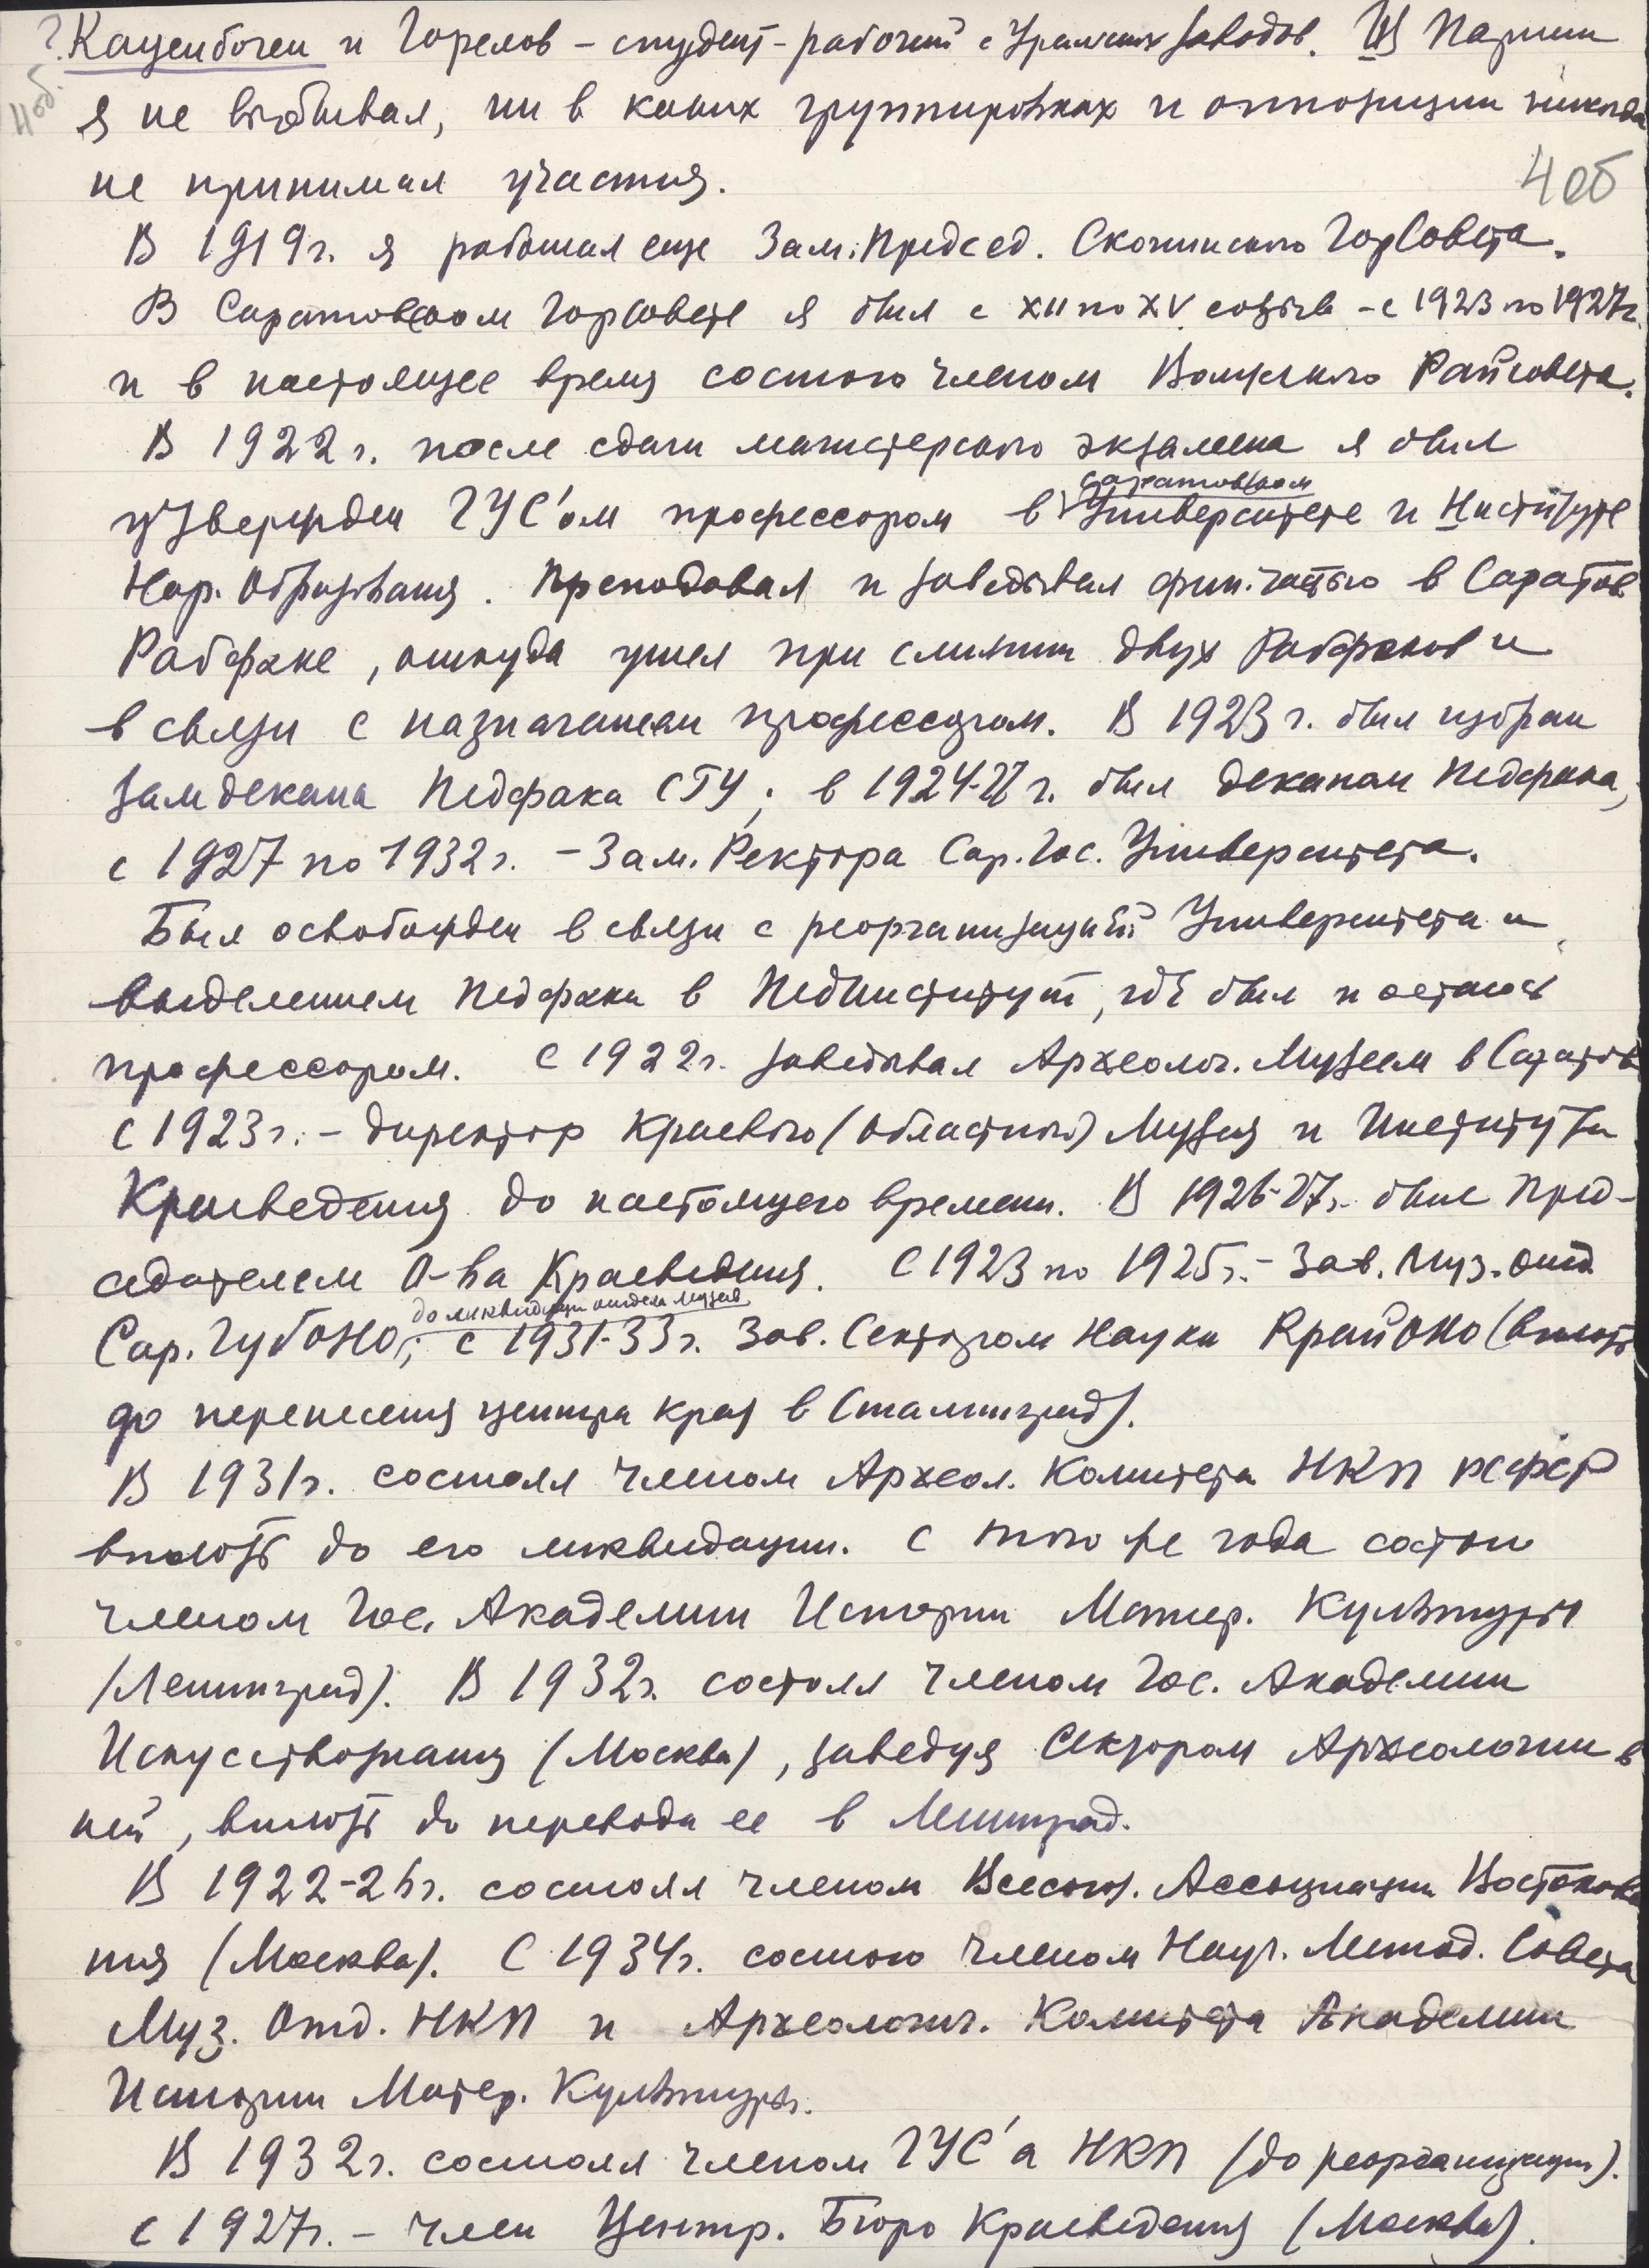 ? Каценбоген и Горелов – студент-рабочий с Уральских заводов. Из Партии
я не выбывал, ни в каких группировках и оппозиции никогда
не принимал участия.
4 об
В 1919 г. я работал еще Зам. Председ. Скопинского ГорСовета.
В Саратовском Горсовете я был с XII по XV созыв – с 1923 по 1927 г.
и в настоящее время состою членом Волжского Райсовета.
В 1922 г. после сдачи магистерского экзамена я был
утвержден ГУС'ом профессором в Саратовском Университете и Институте
Нар. Образования. Преподавал и заведывал фил. частью в Саратов.
Рабфаке, откуда ушел при слиянии двух Рабфаков и
в связи с назначением профессором. В 1923 г. был избран
замдекана Педфака СГУ; в 1924-27 г. был деканом Педфака,
с 1927 по 1932 г. – Зам. Ректора Сар. Гос. Университета.
Был освобожден в связи с реорганизацией Университета и
выделением Педфака в Пединститут, где был и остаюсь
профессором. С 1922 г. заведывал Археолог. Музеем в Саратове
С 1923 г. – директор Краевого (областного) Музея и Института
Краеведения до настоящего времени. В 1926-27 г. был Пред-
седателем О-ва Краеведения. С 1923 по 1925 г. – Зав. Муз. отд.
Сар. ГубОНО, до ликвидации отдела музеев; с 1931-33 г. Зав. Сектором Науки КрайОНО (вплоть
до перенесения центра края в Сталинград).
В 1931 г. состоял членом Археол. Комитета НКП РСФСР
вплоть до его ликвидации. С того же года состою
членом Гос. Академии Истории Матер. Культуры
(Ленинград). В 1932 г. состоял членом Гос. Академии
Искусствознания (Москва), заведуя Сектором Археологии в
ней, вплоть до перевода ее в Ленинград.
В 1922-26 г. состоял членом Всесоюз. Ассоциации Востокове
ния (Москва). С 1934 г. состою членом Науч. Метод. Совета
Муз. Отд. НКП и Археологич. Комитета Академии
Истории Матер. Культуры.
В 1932 г. состоял членом ГУС'а НКП (до реорганизации).
с 1927 г. – член Центр. Бюро Краеведения (Москва).